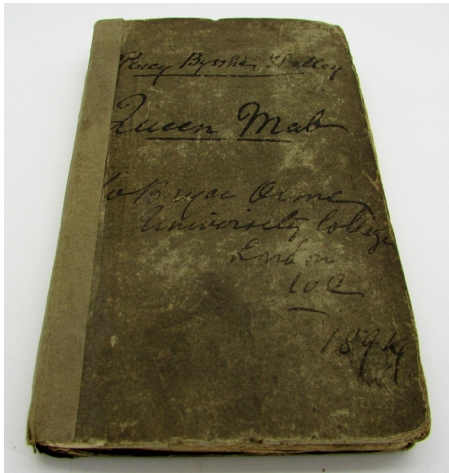 Percy Bysshe Shelley
Queen Mab
Orme
University College
London
W.C